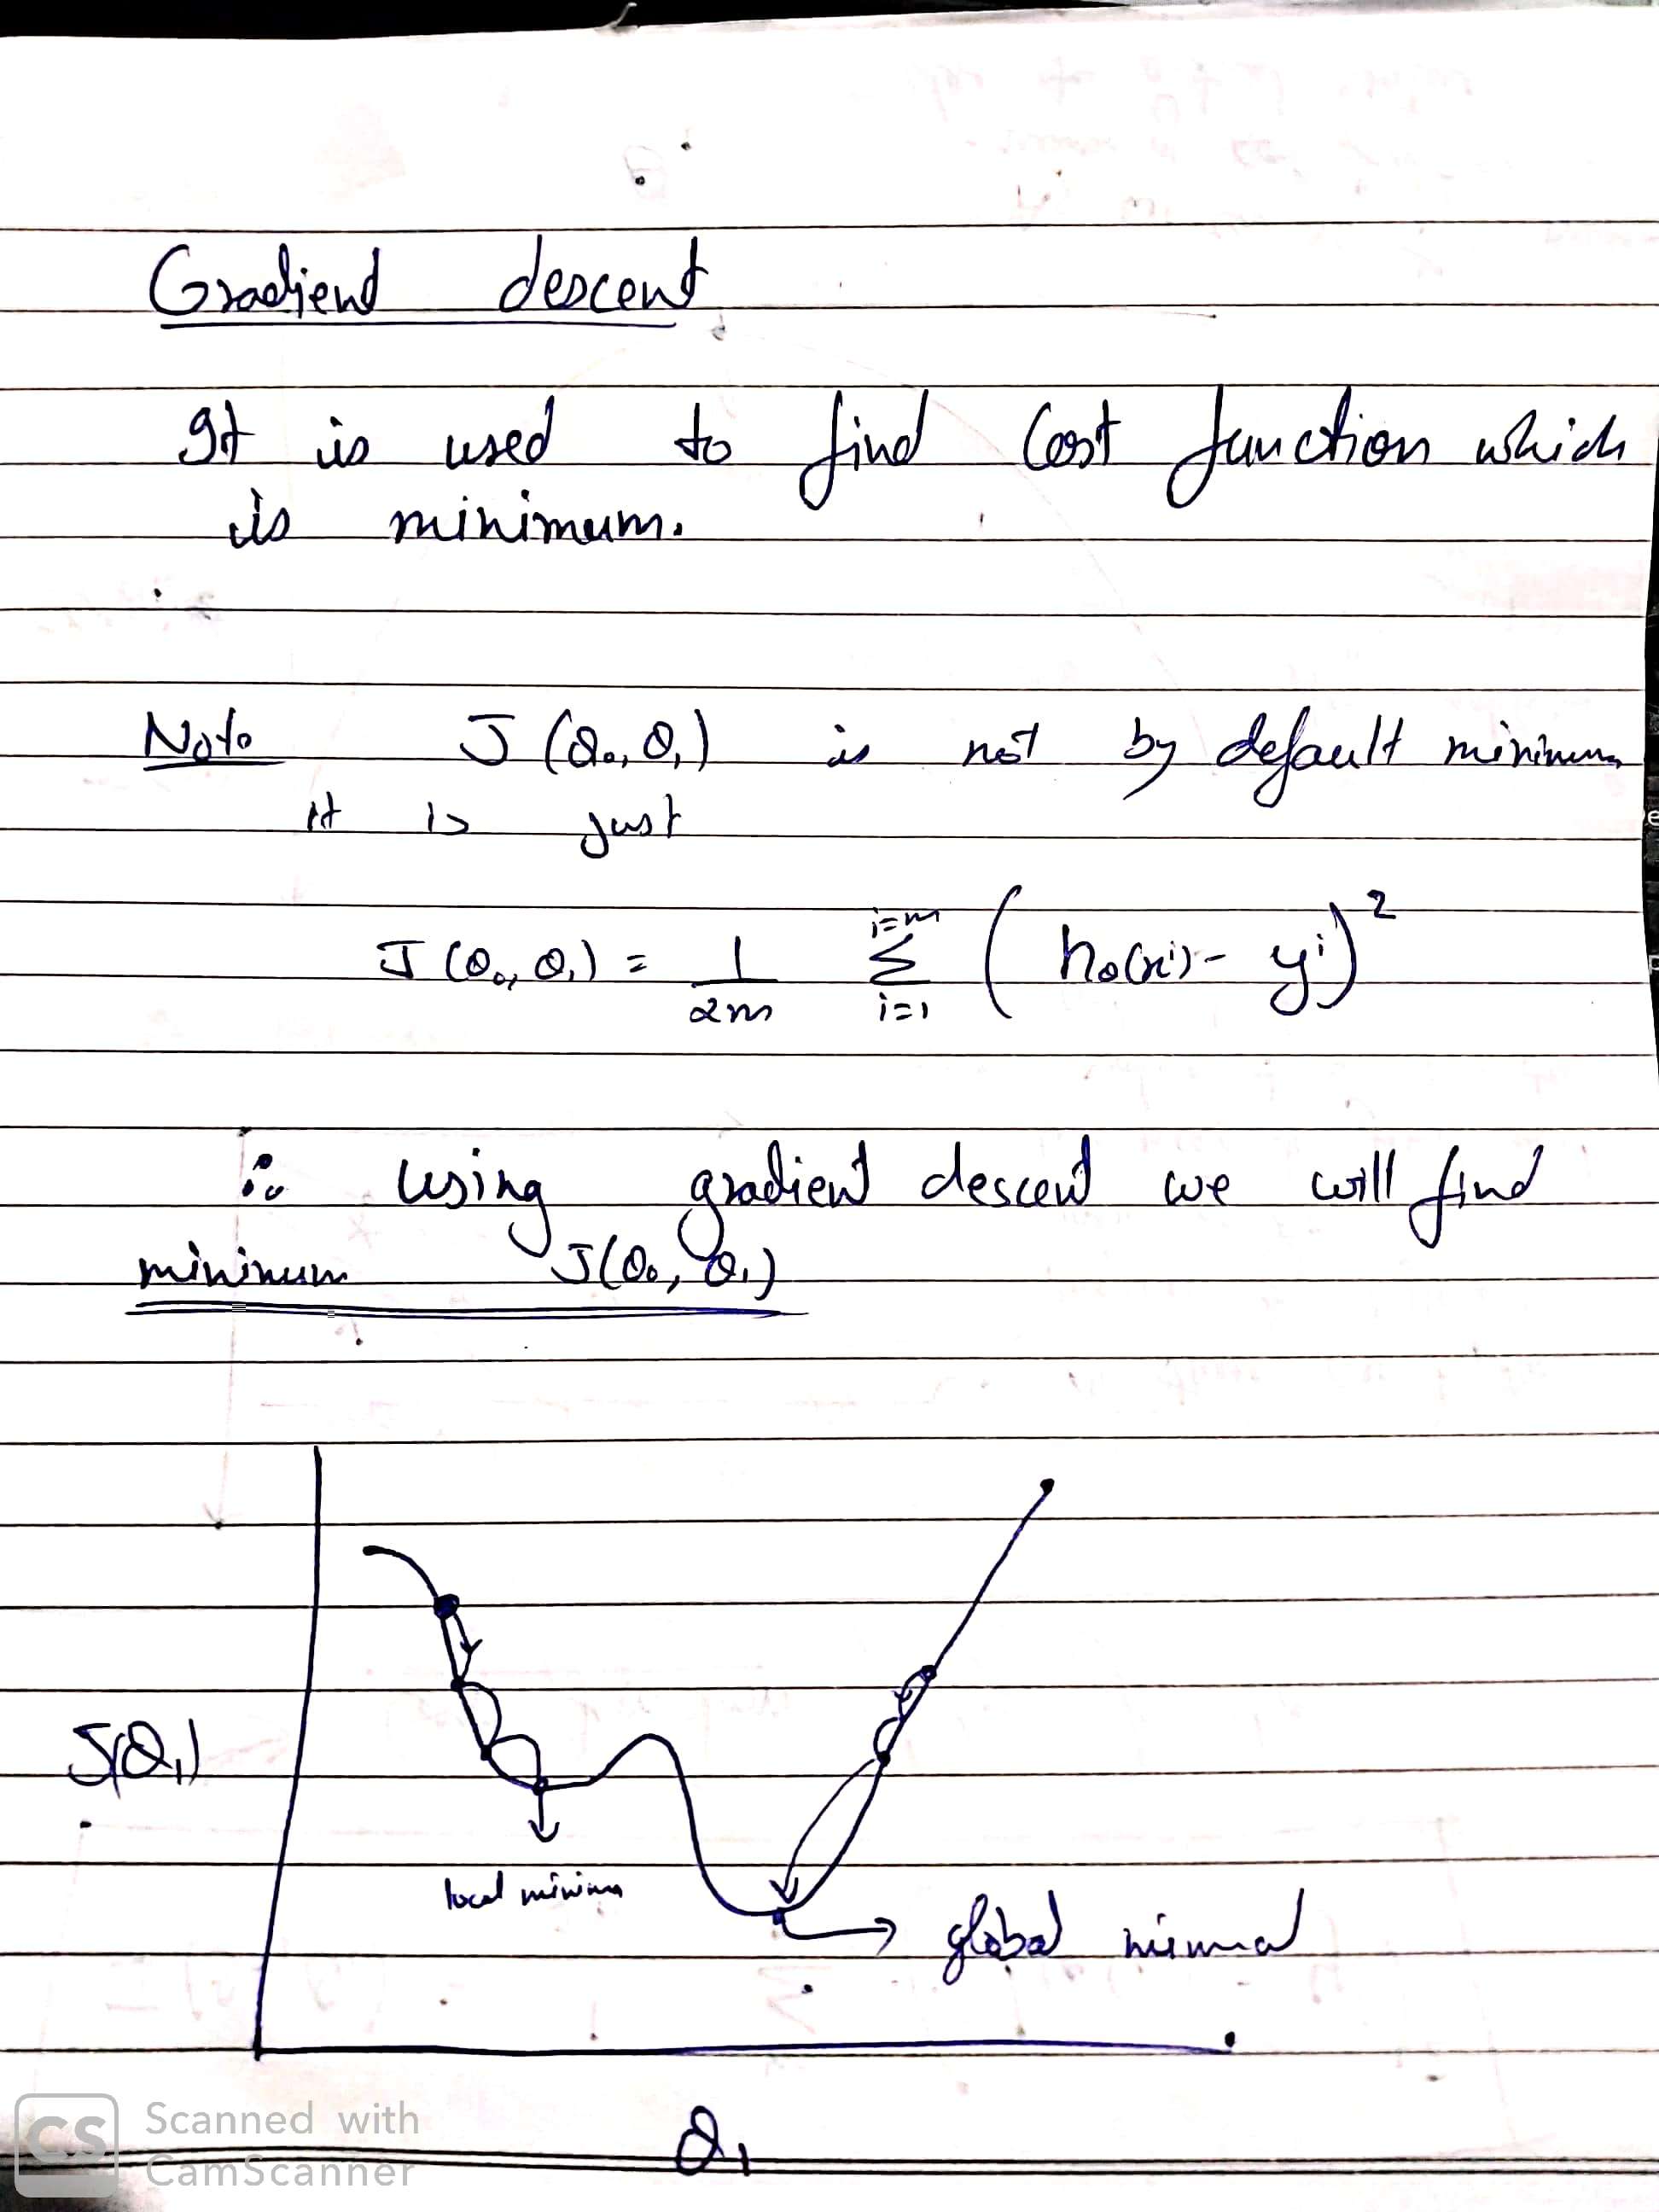 Gradient descent
It is used to find Cost function which
is minimum.
Note J(θ₀, θ₁) is not by default minimum
it is just
J(θ₀, θ₁) = 1/2m Σ i=1 i=m (hθ(xⁱ) - yⁱ)²
∴ using gradient descent we will find
minimum J(θ₀, θ₁)
J(θ₁)
local minima
global
θ₁
CS Scanned with
CamScanner